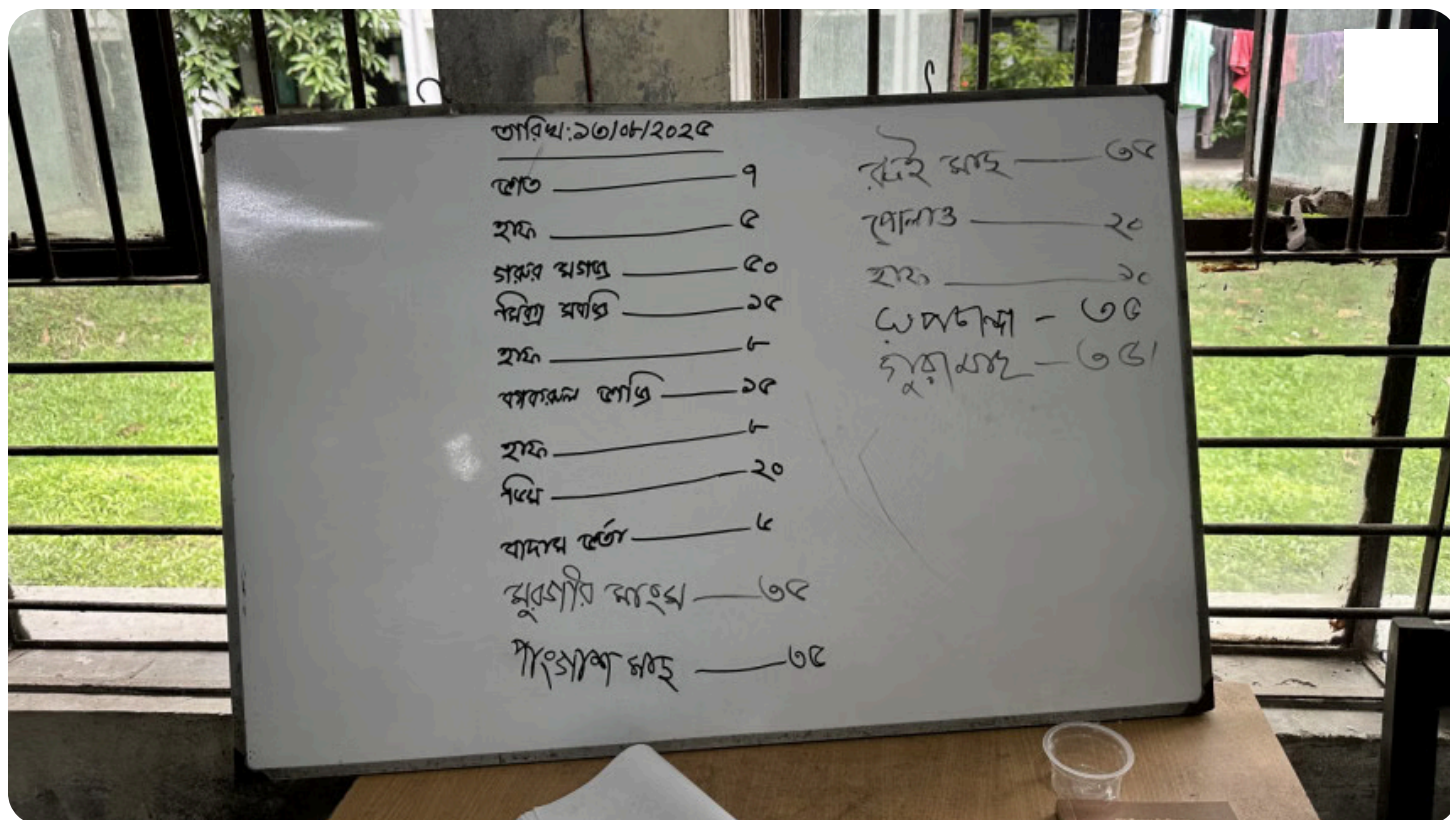 তারিখ: ১৩/০৮/২০২৫
ভাত ৭
হাফ ৫
গরুর মগজ ৫০
মিক্স সবজি ১৫
হাফ ৮
ভাজি ১৫
হাফ ৮
ডিম ২০
বাদাম ভর্তা ৮
মুরগীর মাংস ৩৫
পাংগাশ মাছ ৩৫
রুই মাছ ৩৫
পোলাও ২০
হাফ ১০
রূপচান্দা - ৩৫
গুরামাছ - ৩৫